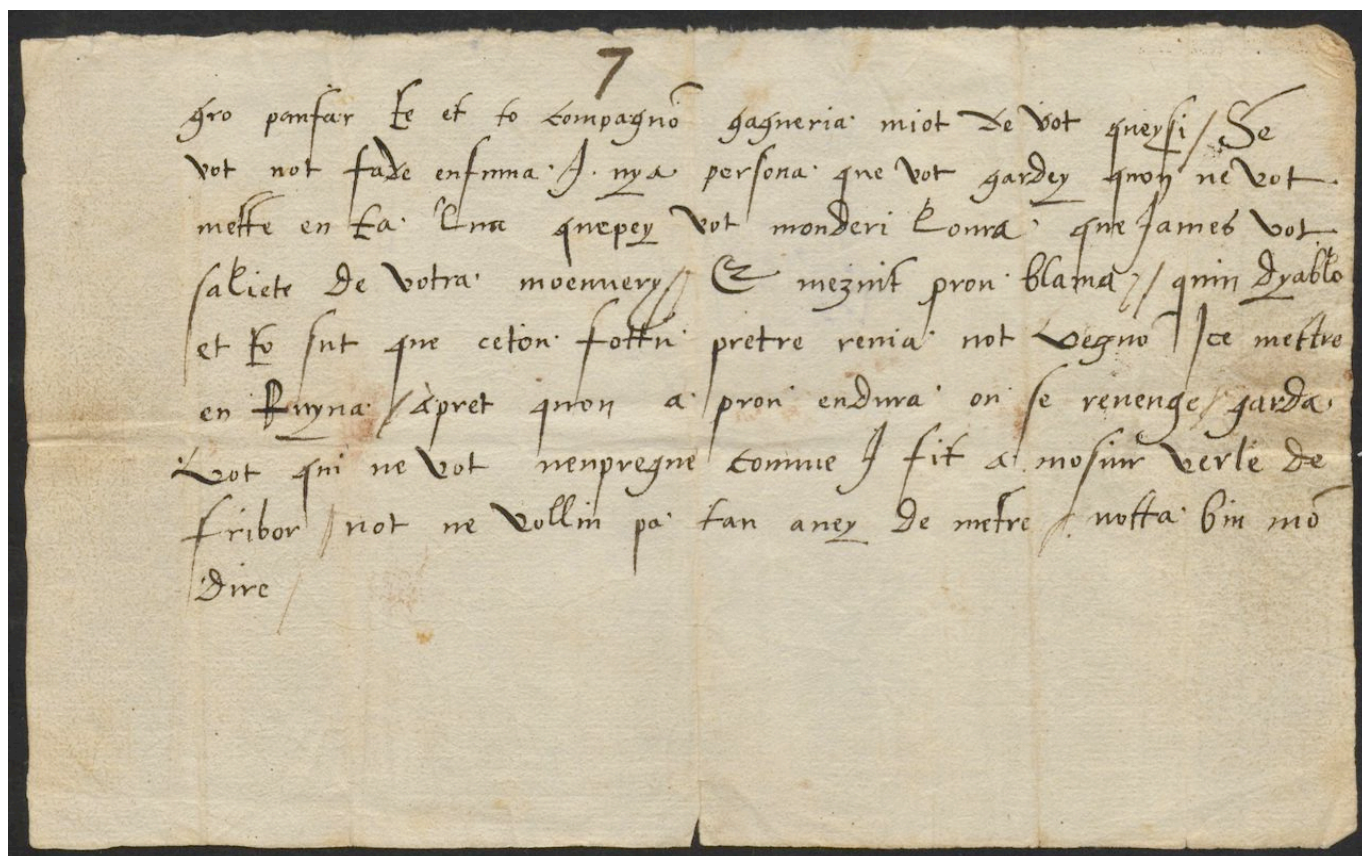 7
gro panfar te et to compagnõ gagneria miot de vot queysi / Se
vot not fade enfuma. I. nya persona que vot gardey quon ne vot
mette en ta lua quepey vot monderi Loura que James vot
saliete de votra moennery // Et mezuit pron blama // quin dyablo
et to sut que ceton fottu pretre renia not vegnõ Ice mettre
en Ruyna / apret quon a pron endura on se revenge / garda
vot qui ne vot nenpregne comme I fit a mosiur verle de
Fribor / not ne vollin pa tan aney de metre / notta bin mõ
dire /